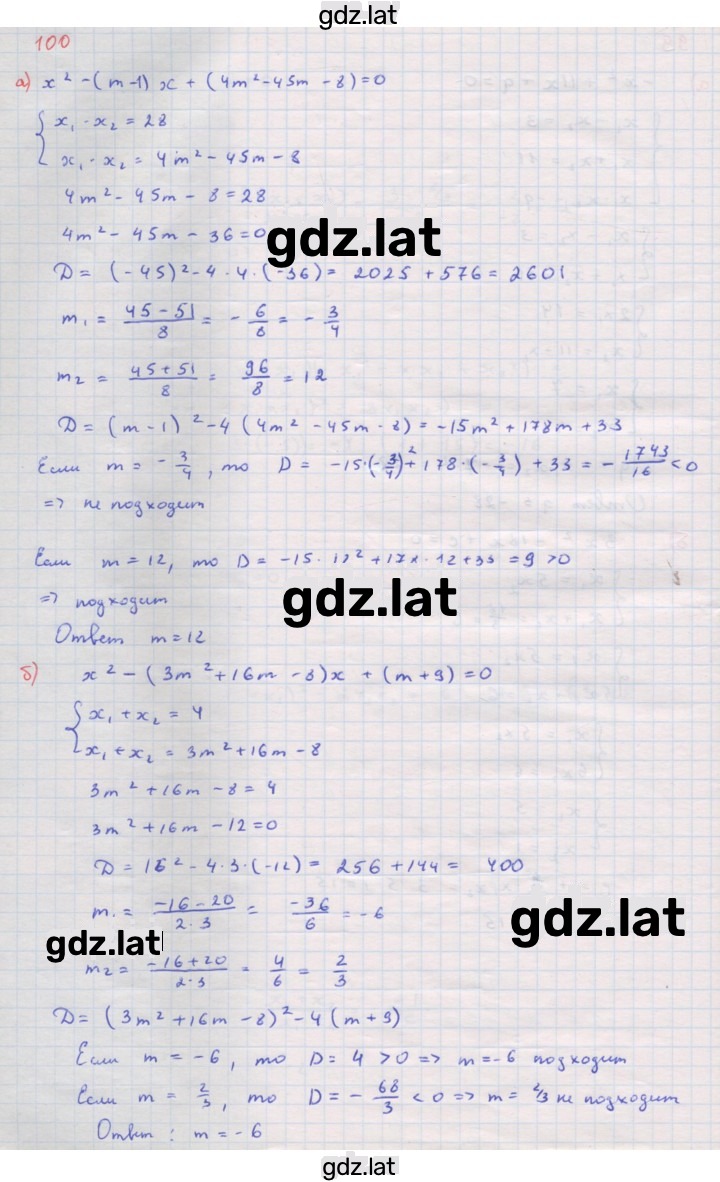 gdz.lat
100
а) x² - (m-1) x + (4m² - 45m - 8) = 0
{ x₁ · x₂ = 28
x₁ · x₂ = 4m² - 45m - 8
4m² - 45m - 8 = 28
4m² - 45m - 36 = 0
gdz.lat
D = (-45)² - 4 · 4 · (-36) = 2025 + 576 = 2601
m₁ = (45 - 51)/8 = - 6/8 = - 3/4
m₂ = (45 + 51)/8 = 96/8 = 12
D = (m - 1)² - 4 (4m² - 45m - 8) = -15m² + 178m + 33
Если m = - 3/4, то D = -15·(-3/4)² + 178·(-3/4) + 33 = - 1743/16 < 0
=> не подходит
Если m = 12, то D = -15 · 12² + 178 · 12 + 33 = 9 > 0
=> подходит
gdz.lat
Ответ m = 12
б) x² - (3m² + 16m - 8)x + (m + 9) = 0
{ x₁ + x₂ = 4
x₁ + x₂ = 3m² + 16m - 8
3m² + 16m - 8 = 4
3m² + 16m - 12 = 0
D = 16² - 4·3·(-12) = 256 + 144 = 400
m₁ = (-16 - 20)/(2·3) = -36/6 = -6
gdz.lat
gdz.lat
m₂ = (-16 + 20)/(2·3) = 4/6 = 2/3
D = (3m² + 16m - 8)² - 4 (m + 9)
Если m = -6, то D = 4 > 0 => m = -6 подходит
Если m = 2/3, то D = - 68/3 < 0 => m = 2/3 не подходит
Ответ: m = -6
gdz.lat